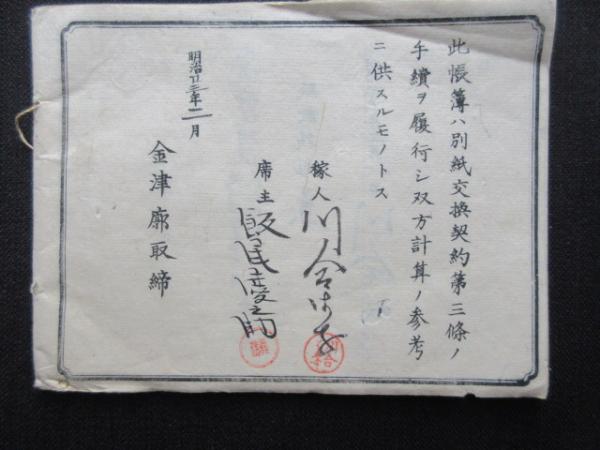 此帳簿ハ別紙交換契約第三條ノ
手續ヲ履行シ双方計算ノ参考
ニ供スルモノトス
稼人 川合
席主 飯民慶之助
明治廿三年二月
金津廓取締